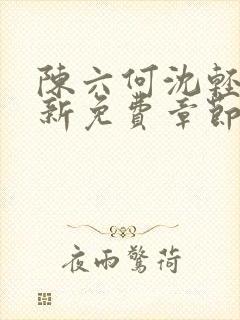 陳六何沈輕
新免費章節
夜雨驚荷